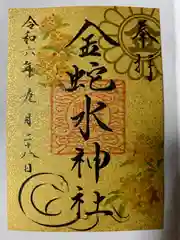 奉拝
金蛇水神社
令和六年九月二十八日